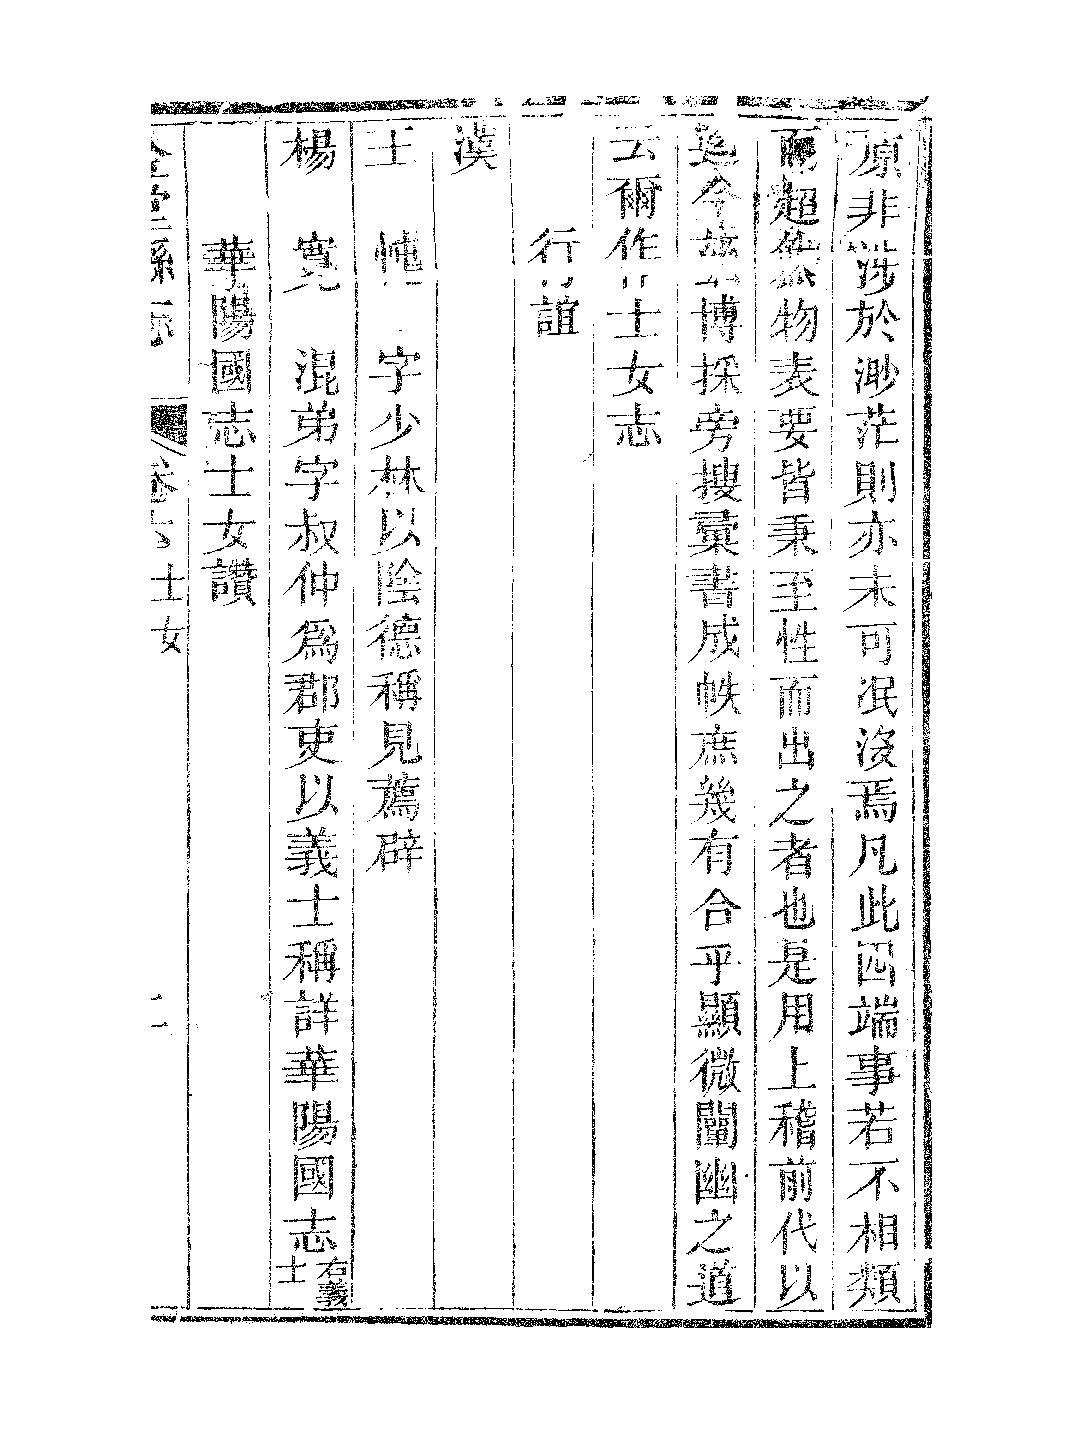 原非涉於渺茫則亦未可泯沒焉凡此四端事若不相類
而超然物表要皆秉至性而出之者也是用上稽前代以
迄今茲博採旁搜彙書成帙庶幾有合乎顯微闡幽之道
云爾作士女志
行誼
漢
王忳字少林以陰德稱見薦辟
楊寬混弟字叔仲為郡吏以義士稱詳華陽國志右義士
華陽國志士女讚
金堂縣志 卷六士女 二